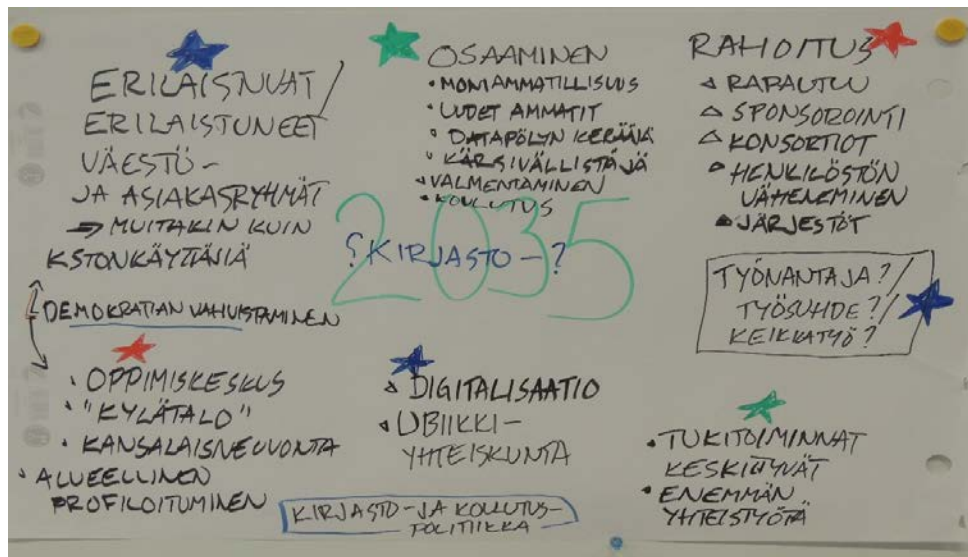 ERILAISTUVAT /
ERILAISTUNEET
VÄESTÖ-
JA ASIAKASRYHMÄT
→ MUITAKIN KUIN
KSTONKÄYTTÄJIÄ
DEMOKRATIAN VAHVISTAMINEN
• OPPIMISKESKUS
• "KYLÄTALO"
• KANSALAISNEUVONTA
• ALUEELLINEN
PROFILOITUMINEN
OSAAMINEN
• MONIAMMATILLISUUS
• UUDET AMMATIT
• DATAPÖLYN KERÄÄJÄ
• KÄRSIVÄLLISTÄJÄ
• VALMENTAMINEN
• KOULUTUS
2035
?KIRJASTO-?
• DIGITALISAATIO
• UBIIKKI-
YHTEISKUNTA
KIRJASTO- JA KOULUTUS-
POLITIIKKA
RAHOITUS
• RAPAUTUU
• SPONSOROINTI
• KONSORTIOT
• HENKILÖSTÖN
VÄHENEMINEN
• JÄRJESTÖT
TYÖNANTAJA? /
TYÖSUHDE? /
KEIKKATYÖ?
• TUKITOIMINNAT
KESKITTYVÄT
• ENEMMÄN
YHTEISTYÖTÄ